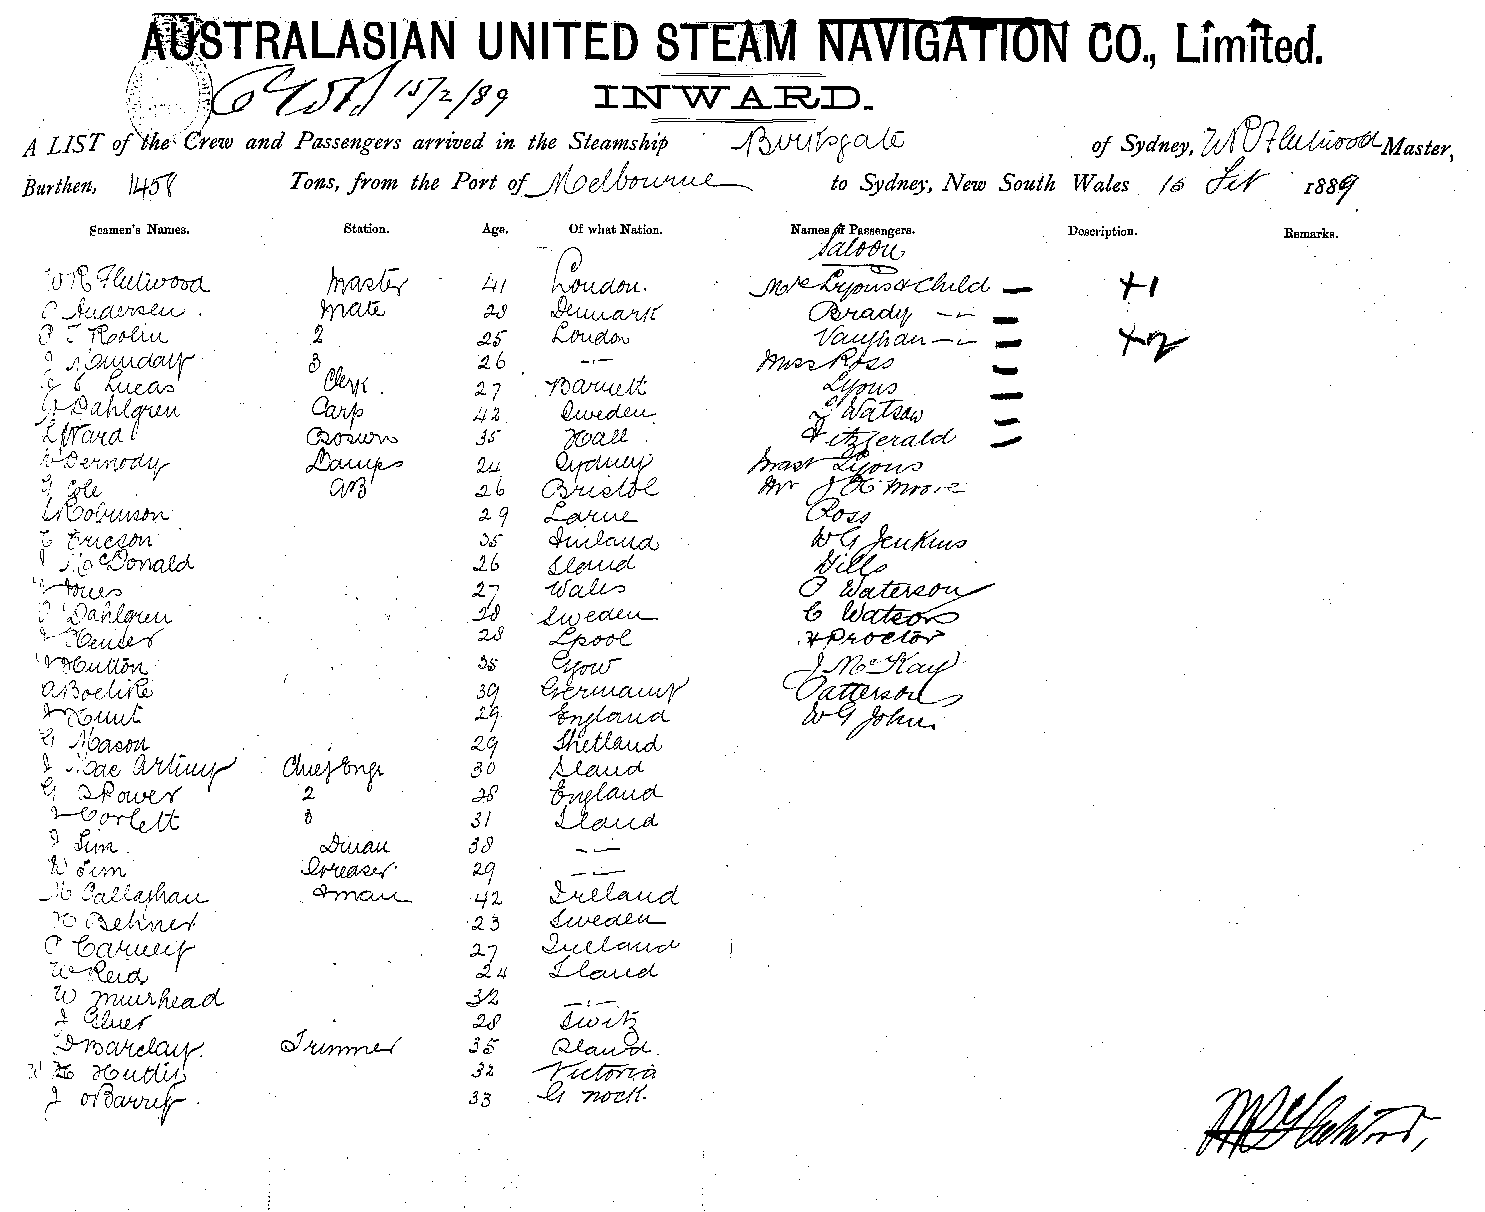 AUSTRALASIAN UNITED STEAM NAVIGATION CO., Limited.
15/2/89
INWARD.
A LIST of the Crew and Passengers arrived in the Steamship Burksgate of Sydney, WR Fleetwood Master,
Burthen, 1458 Tons, from the Port of Melbourne to Sydney, New South Wales 15 Feb 1889
Seamen's Names. Station. Age. Of what Nation. Names of Passengers. Description. Remarks.
Saloon
WR Fleetwood Master 41 London. Mrs Lyons & Child — +1
C Andersen. Mate 28 Denmark Brady -"- —
Roslin 2 25 London Vaughan -"- — +2
J Munday 3 26 -"- Miss Ross —
Lucas Clerk. 27 Barnett Lyons —
Dahlgren Carp 42 Sweden L Watson —
Ward Bosun 35 Hall Fitzgerald —
Dermody Lamps 24 Sydney Mast Lyons
Cole AB 26 Bristol Mr J H Moore
Robinson 29 Larne Ross
Ericson 35 Finland WG Jenkins
McDonald 26 Sland Wills
Jones 27 Wales C Waterson
Dahlgren 28 Sweden C Watson
28 Lpool Proctor
Hutton 35 Gow J McKay
A Boelike 39 Germany Patterson
Hunt 29 England WG John.
G Mason 29 Shetland
Mac Artiny Chief Engr 30 Sland
G Power 2 28 England
Corlett 3 31 Sland
J Sim Dman 38 -"-
W Sim Greaser 29 -"-
Callaghan Fman 42 Ireland
H Behner 23 Sweden
C Carney 27 Ireland
W Reid 24 Sland
W Muirhead 32 -"-
J 28 Switz
D Barclay. Trimmer 35 Sland.
32 Victoria
J Barry 33 G nock.
WR Fleetwood,